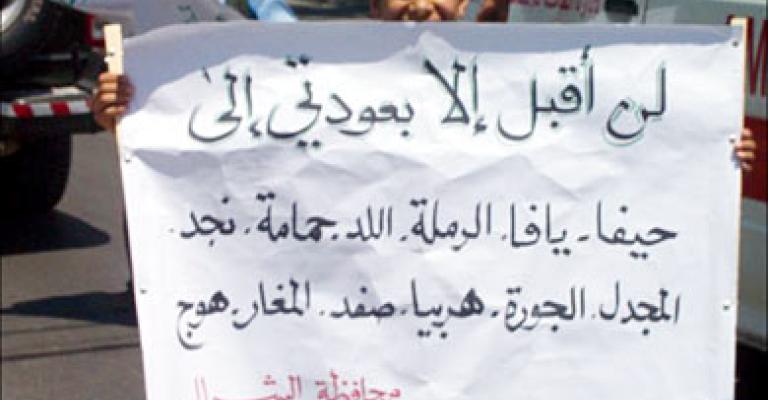 لن أقبل إلا بعودتي إلى
حيفا - يافا - الرملة - اللد - حمامة - نجد -
المجدل - الجورة - هربيا - صفد - المغار - هوج
محافظة الشمال